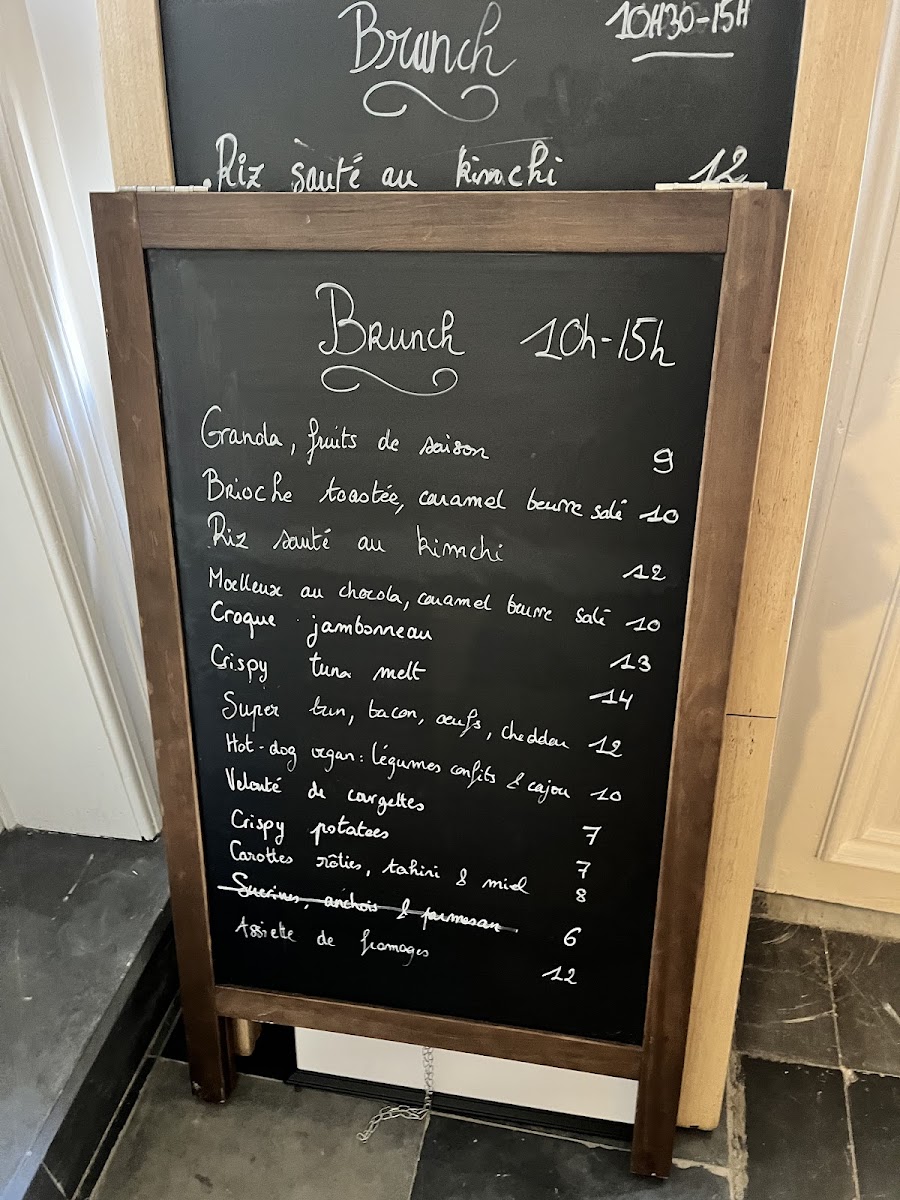 Brunch 10H30-15H
Riz sauté au kimchi 12
Brunch 10h-15h
Granola, fruits de saison 9
Brioche toastée, caramel beurre salé 10
Riz sauté au kimchi 12
Moelleux au chocola, caramel beurre salé 10
Croque jambonneau 13
Crispy tuna melt 14
Super bun, bacon, oeufs, cheddar 12
Hot-dog vegan: légumes confits & cajou 10
Velouté de courgettes 7
Crispy potatoes 7
Carottes rôties, tahini & miel 8
Sucrines, anchois & parmesan 6
Assiette de fromages 12